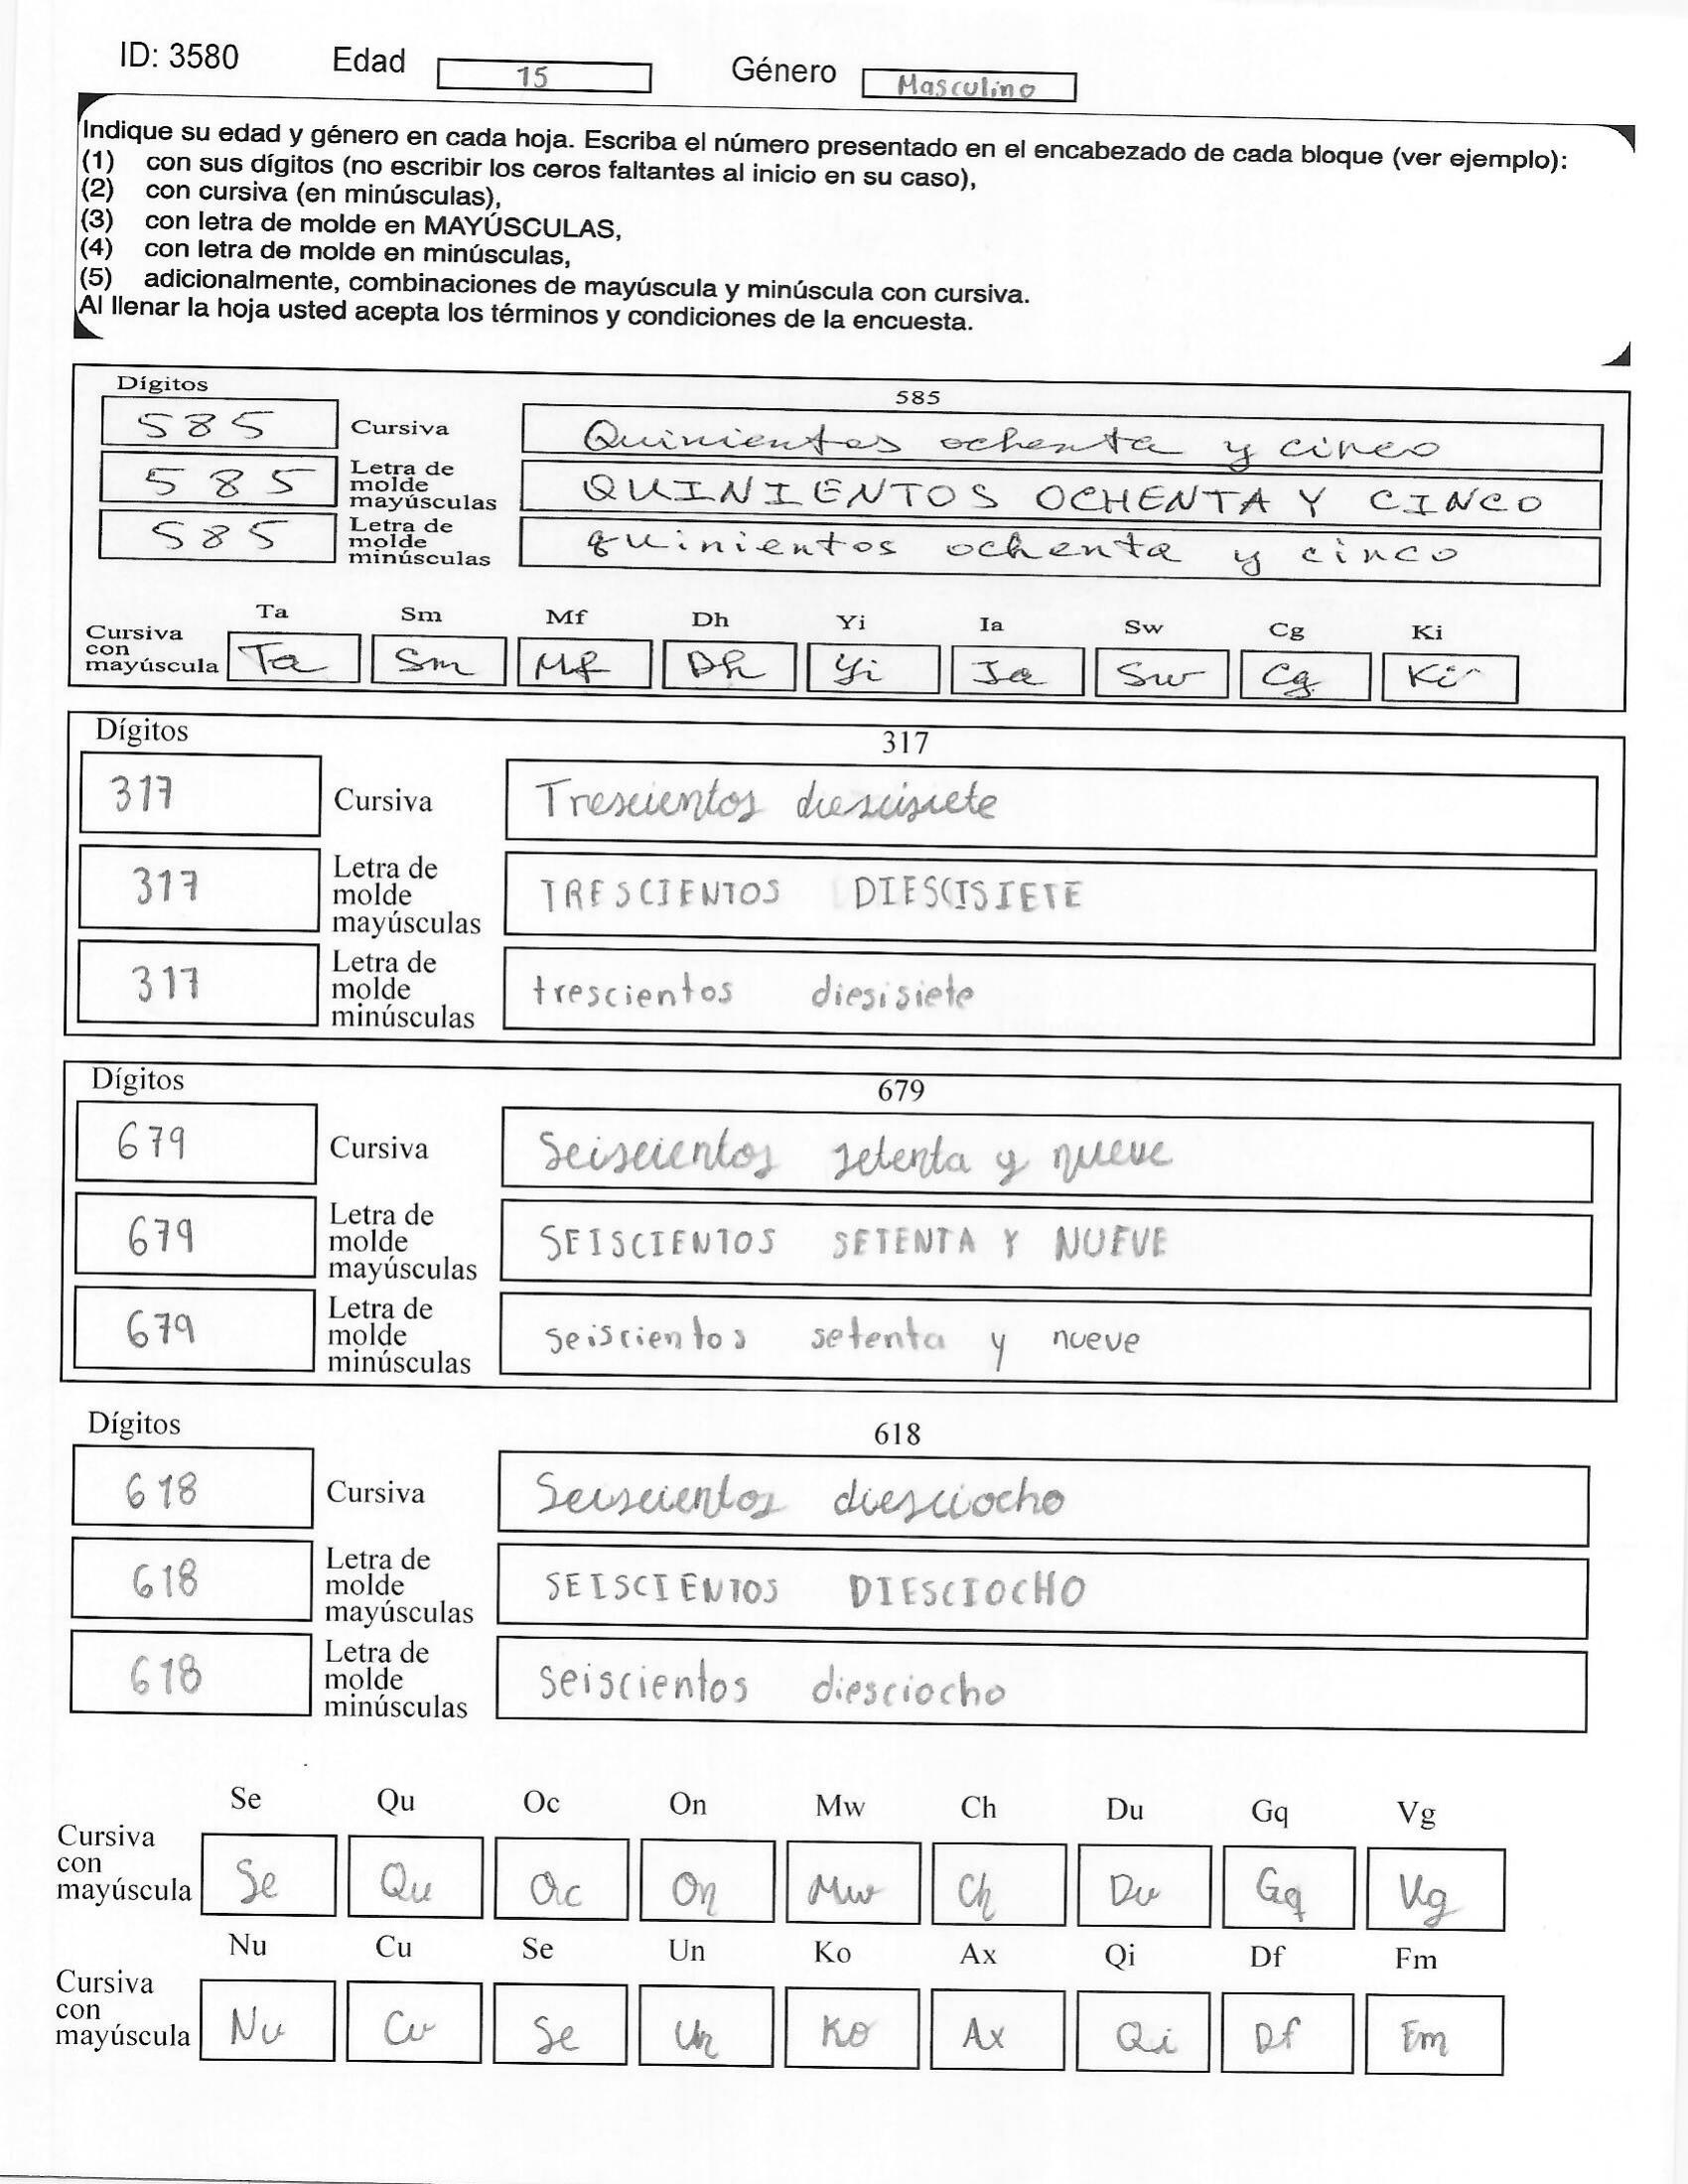 ID: 3580 Edad 15 Género Masculino
Indique su edad y género en cada hoja. Escriba el número presentado en el encabezado de cada bloque (ver ejemplo):
(1) con sus dígitos (no escribir los ceros faltantes al inicio en su caso),
(2) con cursiva (en minúsculas),
(3) con letra de molde en MAYÚSCULAS,
(4) con letra de molde en minúsculas,
(5) adicionalmente, combinaciones de mayúscula y minúscula con cursiva.
Al llenar la hoja usted acepta los términos y condiciones de la encuesta.
Dígitos 585
585 Cursiva Quinientos ochenta y cinco
585 Letra de molde mayúsculas QUINIENTOS OCHENTA Y CINCO
585 Letra de molde minúsculas quinientos ochenta y cinco
Ta Sm Mf Dh Yi Ia Sw Cg Ki
Cursiva con mayúscula Ta Sm Mf Dh Yi Ia Sw Cg Ki
Dígitos 317
317 Cursiva Trescientos diescisiete
317 Letra de molde mayúsculas TRESCIENTOS DIESCISIETE
317 Letra de molde minúsculas trescientos diesisiete
Dígitos 679
679 Cursiva Seiscientos setenta y nueve
679 Letra de molde mayúsculas SEISCIENTOS SETENTA Y NUEVE
679 Letra de molde minúsculas seiscientos setenta y nueve
Dígitos 618
618 Cursiva Seiscientos diesciocho
618 Letra de molde mayúsculas SEISCIENTOS DIESCIOCHO
618 Letra de molde minúsculas seiscientos diesciocho
Se Qu Oc On Mw Ch Du Gq Vg
Cursiva con mayúscula Se Qu Oc On Mw Ch Du Gq Vg
Nu Cu Se Un Ko Ax Qi Df Fm
Cursiva con mayúscula Nu Cu Se Un Ko Ax Qi Df Fm